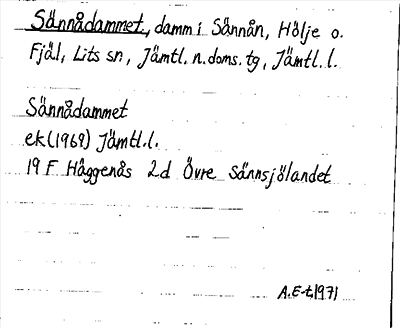 Sännådammet, damm i Sännån, Hölje o.
Fjäl, Lits sn, Jämtl. n. doms. tg, Jämtl. l.
Sännådammet
ek (1969) Jämtl. l.
19 F Häggenås 2d Övre Sännsjölandet
A.E-t, 1971